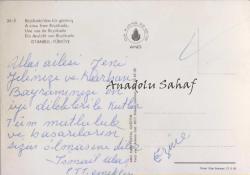 Büyükada'dan bir görünüş
A view from Büyükada
Une vue de Büyükada
Die Ansicht von Büyükada
İSTANBUL - TÜRKİYE
AND
Anadolu Sahaf
Ulaş ailesi Yeni
Yılınızı ve Kurban
Bayramınızı en
iyi dileklerle kutlar
Tüm mutluluk
ve başarıların
sizin olmasını diler
İsmail Ulaş